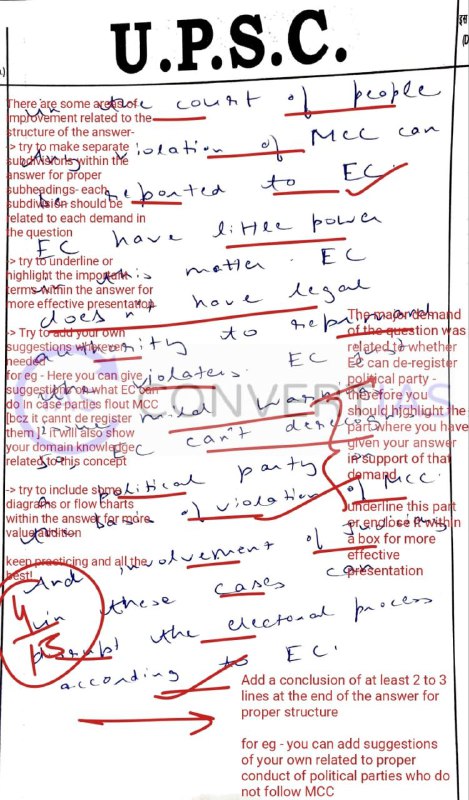 U.P.S.C.
in the court of people
Any violation of MCC can
be reported to EC.
EC have little power
in this matter. EC
does n't have legal
authority to reprimand
the violaters. EC just
some mild warning
EC can't deregister
a political party on
the basis of violation of MCC.
And involvement of
in these cases can
disrupt the electoral process
according to EC.
4/15
There are some areas of
improvement related to the
structure of the answer-
-> try to make separate
subdivisions within the
answer for proper
subheadings- each
subdivision should be
related to each demand in
the question
-> try to underline or
highlight the important
terms within the answer for
more effective presentation
-> Try to add your own
suggestions wherever
needed
for eg - Here you can give
suggestion on what EC can
do in case parties flout MCC
[bcz it cannt de register
them ] it will also show
your domain knowledge
related to this concept
-> try to include some
diagrams or flow charts
within the answer for more
value addition
keep practicing and all the
best!
The major demand
of the question was
related to whether
EC can de-register
political party -
therefore you
should highlight the
part where you have
given your answer
in support of that
demand
underline this part
or enclose it within
a box for more
effective
presentation
Add a conclusion of at least 2 to 3
lines at the end of the answer for
proper structure
for eg - you can add suggestions
of your own related to proper
conduct of political parties who do
not follow MCC